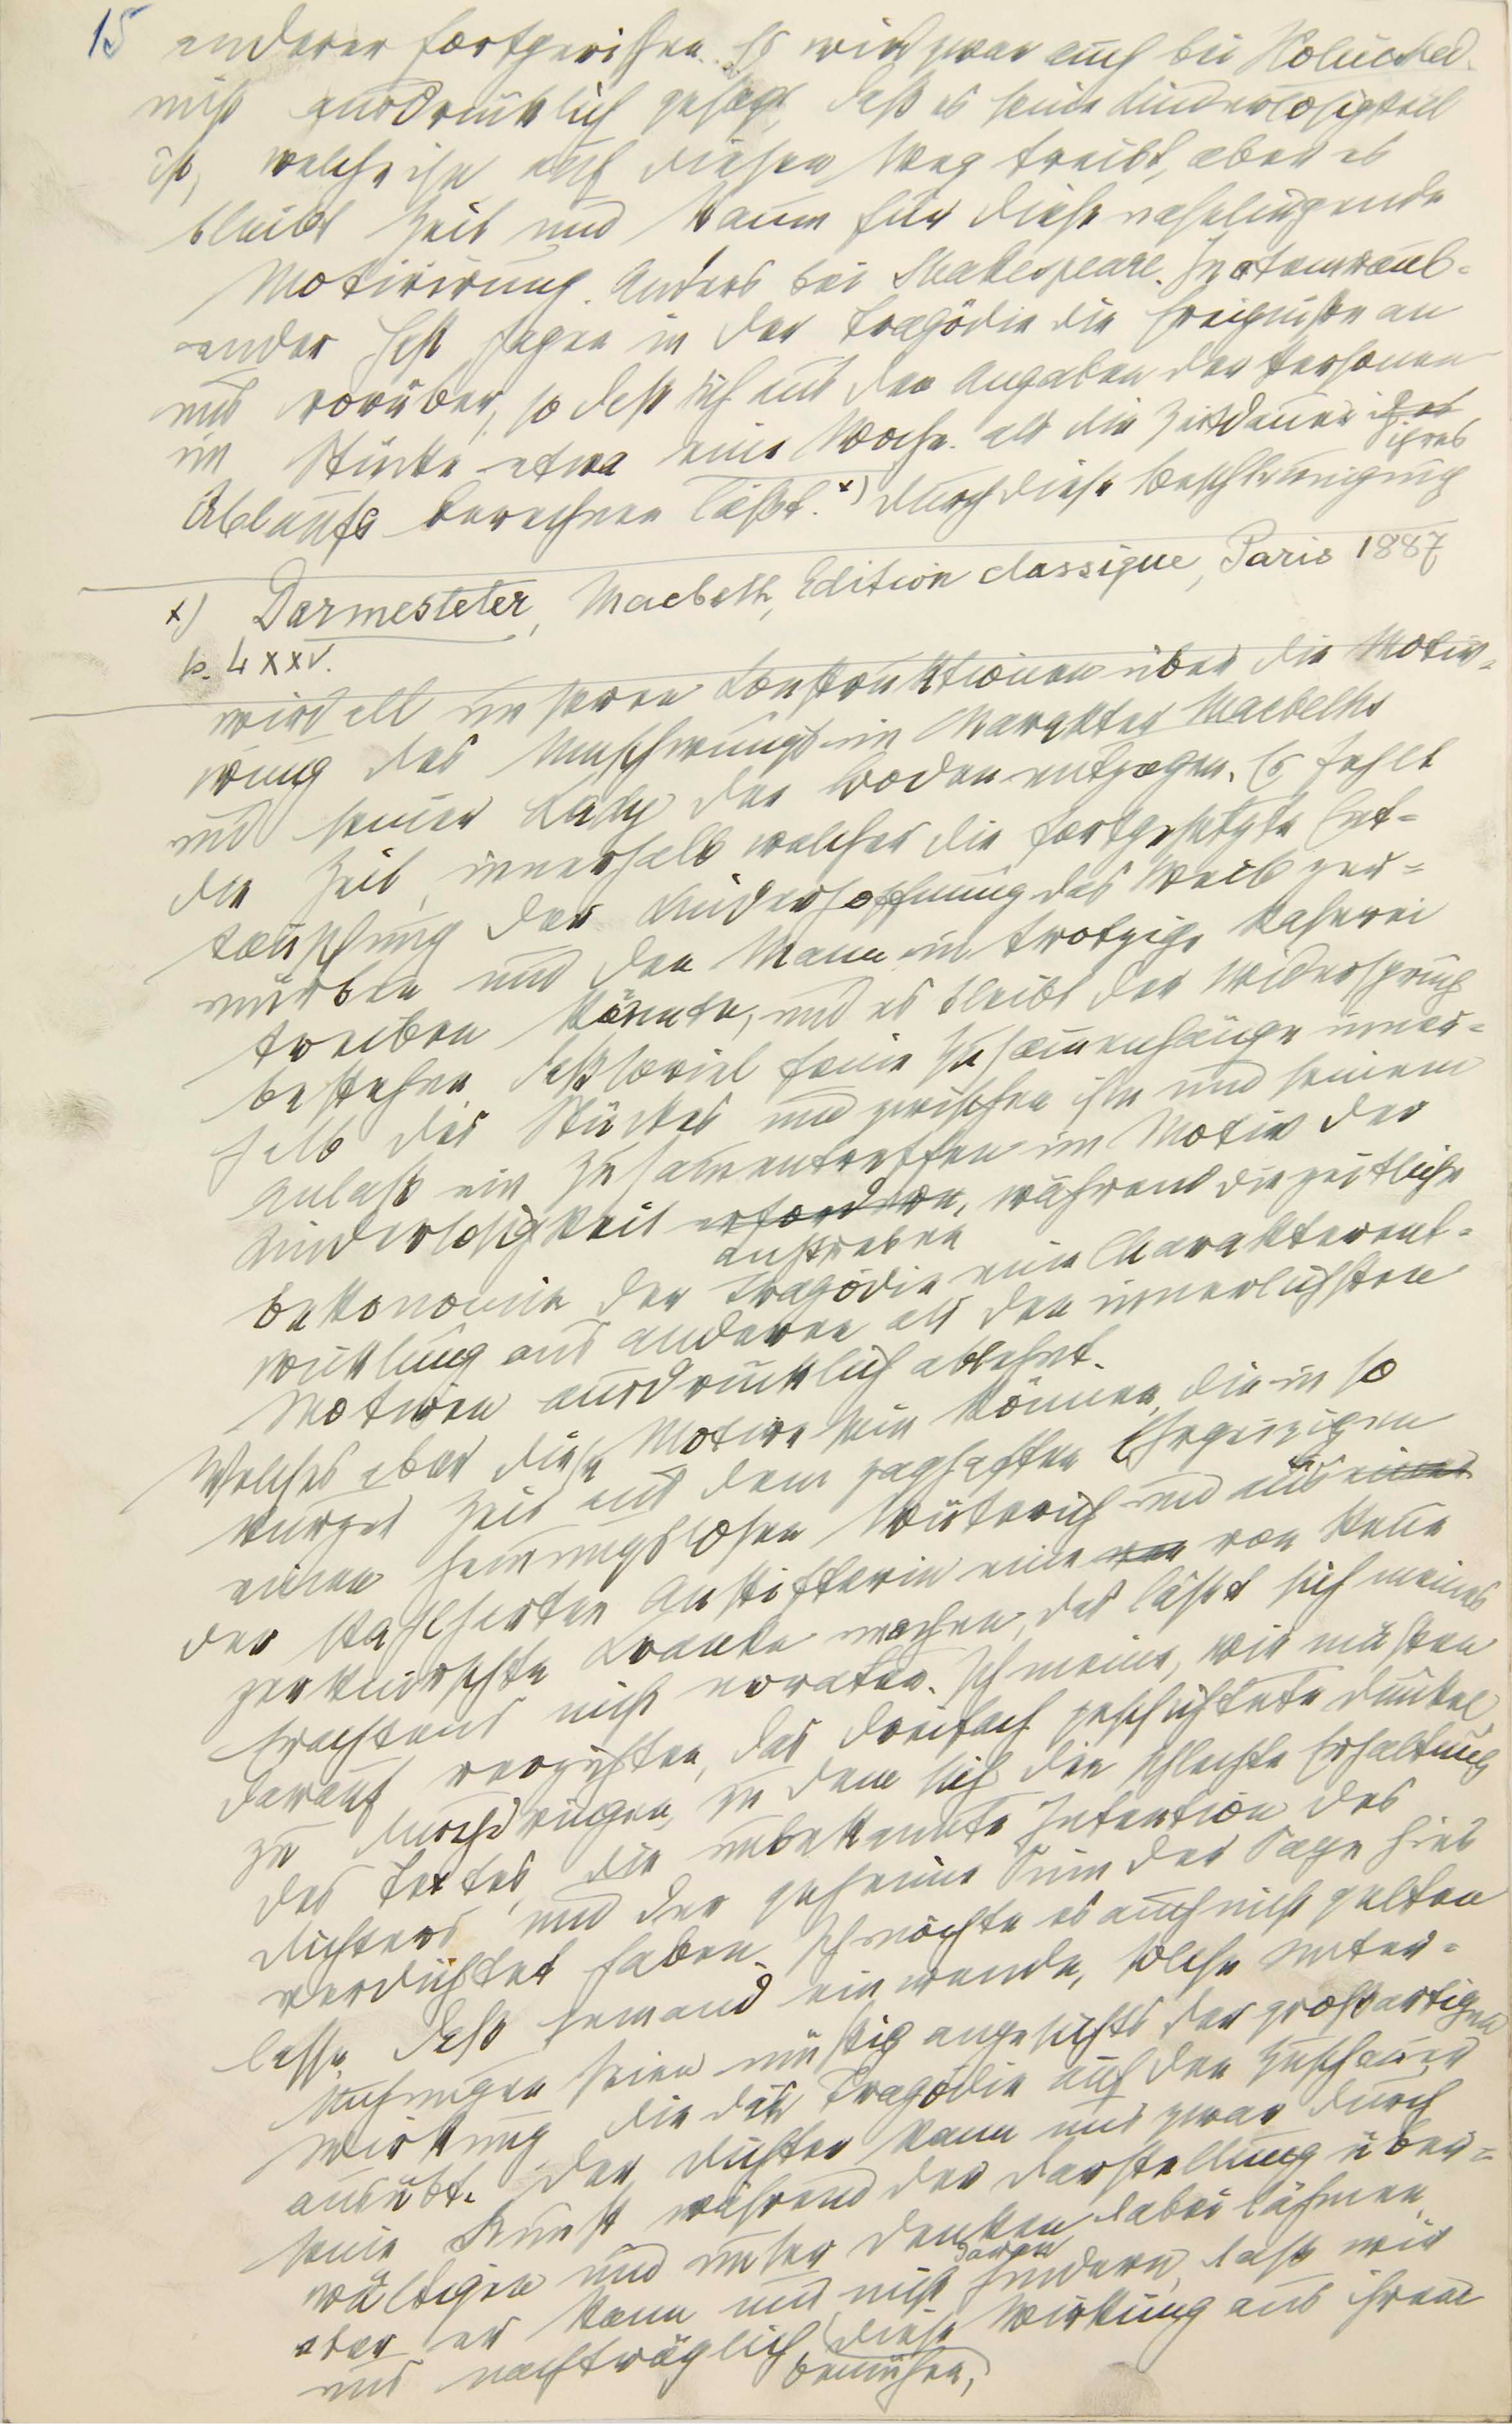 15 anderen fortgerissen. Es wird zwar auch bei Holinshed
nicht ausdrücklich gesagt, daß es seine Kinderlosigkeit
ist, welche ihn auf diesen Weg treibt, aber es
bleibt Zeit und Raum für diese naheliegende
Motivirung. Anders bei Shakespeare. In atemraub-
ender Hast jagen in der Tragödie die Ereigniße an
uns vorüber, so daß sich aus den Angaben der Personen
im Stücke etwa eine Woche als die Zeitdauer
ihres
Ablaufs berechnen läßt. x) Durch diese Beschleunigung
x) Darmesteter, Macbeth, Edition classique, Paris 1887
p. LXXV.
wird all unseren Konstruktionen über die Motivi-
rung des Umschwungs im Charakter Macbeths
und seiner Lady der Boden entzogen. Es fehlt
die Zeit, innerhalb welcher die fortgesetzte Ent-
täuschung der Kinderhoffnung das Weib zer-
mürben und den Mann in trotzige Raserei
treiben könnte, und es bleibt der Widerspruch
bestehen, daß soviel feine Zusammenhänge inner-
halb des Stückes und zwischen ihm und seinem
Anlaß ein Zusammentreffen im Motiv der
Kinderlosigkeit erfordern, während die zeitliche
anstreben
Oekonomie der Tragödie eine Charakterent-
wicklung aus anderen als den innerlichsten
Motiven ausdrücklich ablehnt.
Welches aber diese Motive sein können, die in so
kurzer Zeit aus dem zaghaften Ehrgeizigen
einen hemmungslosen Wüterich und aus einer
der stahlharten Anstifterin eine von von Reue
zerknirschte Kranke machen, das läßt sich meines
Erachtens nicht erraten. Ich meine, wir müßen
darauf verzichten, das dreifach geschichtete Dunkel
zu durchdringen, zu dem sich die schlechte Erhaltung
des Textes, die unbekannte Intention des
Dichters und der geheime Sinn der Sage hier
verdichtet haben. Ich möchte es auch nicht gelten
lassen, daß jemand einwende, solche Unter-
suchungen seien müßig angesichts der großartigen
Wirkung, die die Tragödie auf den Zuschauer
ausübt. Der Dichter kann uns zwar durch
seine Kunst während der Darstellung über-
wältigen und unser Denken dabei lähmen,
daran
aber er kann uns nicht hindern, daß wir
uns nachträglich diese Wirkung aus ihrem
bemühen,